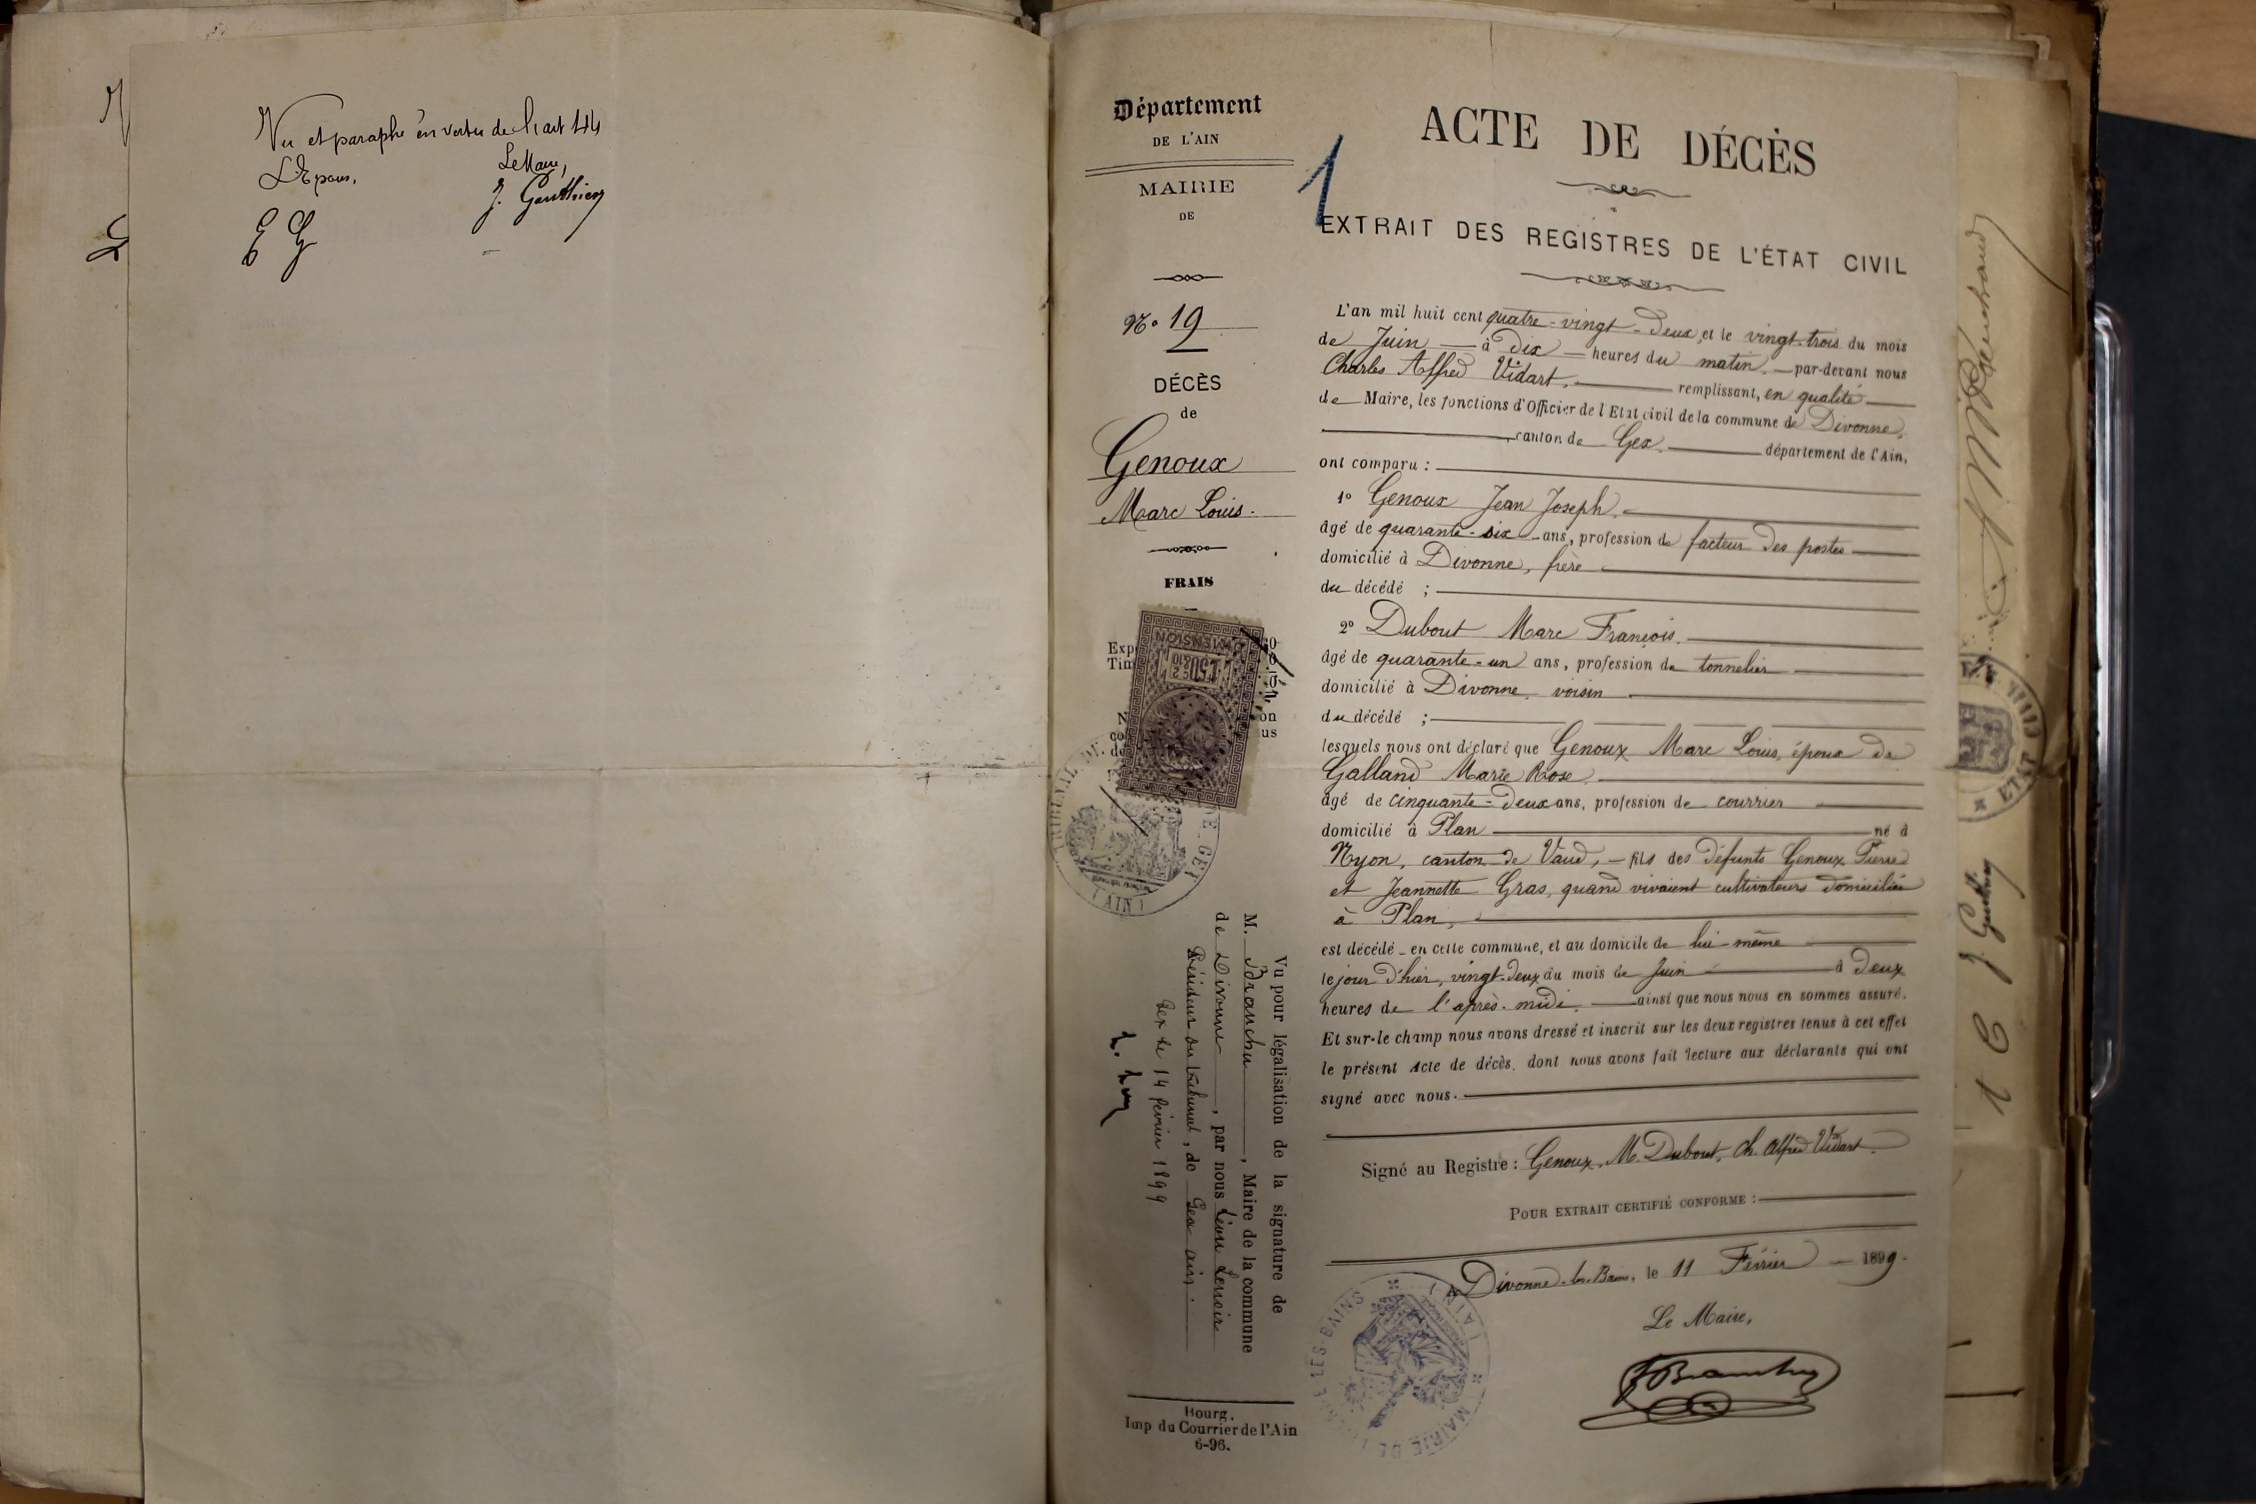 Vu et paraphé en vertu de l'art 44
L'Epoux, Le Maire,
J. Gauthier
E G
Département
DE L'AIN
MAIRIE
DE
N° 19
DÉCÈS
de
Genoux
Marc Louis.
FRAIS
Exp
Tim
1
ACTE DE DÉCÈS
EXTRAIT DES REGISTRES DE L'ÉTAT CIVIL
L'an mil huit cent quatre-vingt-deux, et le vingt-trois du mois
de Juin à dix heures du matin, par-devant nous
Charles Alfred Vidart, remplissant, en qualité
de Maire, les fonctions d'Officier de l'Etat civil de la commune de Divonne,
canton de Gex, département de l'Ain,
ont comparu :
1° Genoux Jean Joseph,
âgé de quarante-six ans, profession de facteur des postes
domicilié à Divonne, frère
du décédé ;
2° Dubout Marc François.
âgé de quarante-un ans, profession de tonnelier
domicilié à Divonne, voisin
du décédé ;
lesquels nous ont déclaré que Genoux Marc Louis, époux de
Galland Marie Rose
âgé de cinquante-deux ans, profession de courrier
domicilié à Plan né à
Nyon, canton de Vaud, fils des défunts Genoux Pierre
et Jeannette Gras, quand vivaient cultivateurs domiciliés
à Plan,
est décédé en cette commune, et au domicile de lui-même
le jour d'hier, vingt-deux du mois de Juin à deux
heures de l'après-midi, ainsi que nous nous en sommes assuré.
Et sur-le champ nous avons dressé et inscrit sur les deux registres tenus à cet effet
le présent acte de décès, dont nous avons fait lecture aux déclarants qui ont
signé avec nous.
Signé au Registre : Genoux, M. Dubout, Ch. Alfred Vidart.
POUR EXTRAIT CERTIFIÉ CONFORME :
Divonne-les-Bains, le 11 Février 1899.
Le Maire,
Vu pour légalisation de la signature de
M. Branchu, Maire de la commune
de Divonne, par nous Léon
Président du tribunal, de Gex
Gex le 14 février 1899
TRIBUNAL DE
DE GEX
(AIN)
MAIRIE DE DIVONNE LES-BAINS
(AIN)
Bourg.
Imp du Courrier de l'Ain
6-96.
ETAT CIVIL
J. Gauthier